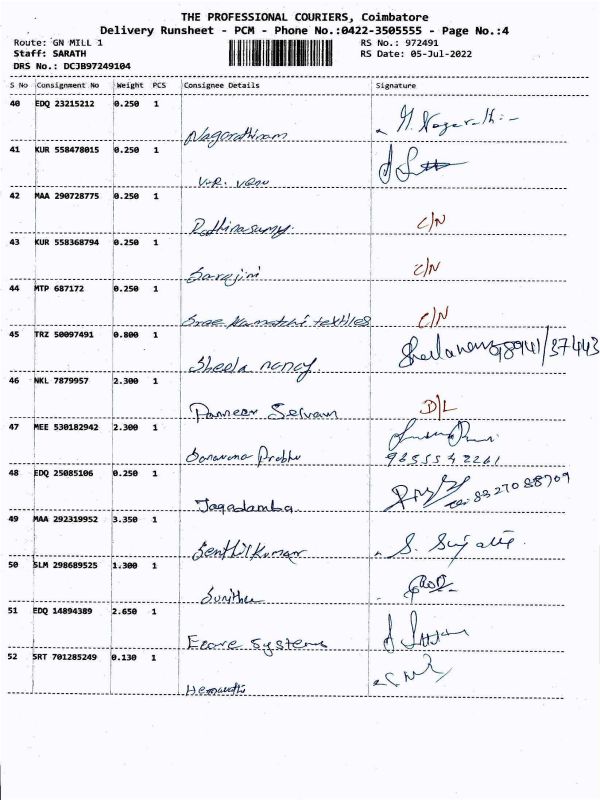 THE PROFESSIONAL COURIERS, Coimbatore
Delivery Runsheet - PCM - Phone No.:0422-3505555 - Page No.:4
Route: GN MILL 1 RS No.: 972491
Staff: SARATH RS Date: 05-Jul-2022
DRS No.: DCJB97249104
S No Consignment No Weight PCS Consignee Details Signature
40 EDQ 23215212 0.250 1
Nagarathinam
41 KUR 558478015 0.250 1
V.R. Venu
42 MAA 290728775 0.250 1
Rathinasamy. C/N
43 KUR 558368794 0.250 1
Sarojini C/N
44 MTP 687172 0.250 1
Sree Kamatchi textiles C/N
45 TRZ 50097491 0.800 1
Sheela nancy
46 NKL 7879957 2.300 1
Panneer Selvam D/L
47 MEE 530182942 2.300 1
Saravana Prabhu
48 EDQ 25085106 0.250 1
Jagadamba
49 MAA 292319952 3.350 1
Senthilkumar
50 SLM 298689525 1.300 1
Sunitha
51 EDQ 14894389 2.650 1
Ecare Systems
52 SRT 701285249 0.130 1